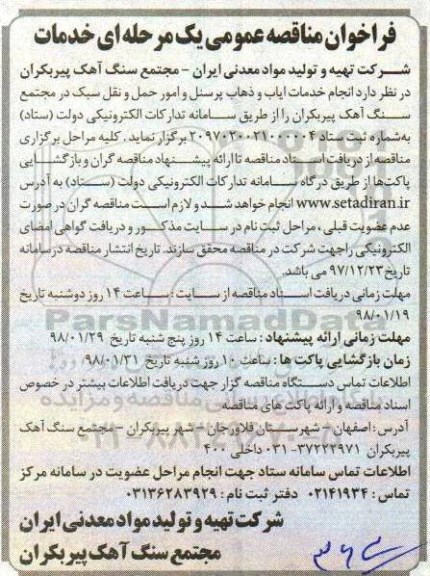 فراخوان مناقصه عمومی یک مرحله ای خدمات
شرکت تهیه و تولید مواد معدنی ایران - مجتمع سنگ آهک پیربکران
در نظر دارد انجام خدمات ایاب و ذهاب پرسنل و امور حمل و نقل سبک در مجتمع
سنگ آهک پیربکران را از طریق سامانه تدارکات الکترونیکی دولت (ستاد)
به شماره ثبت ستاد ۲۰۹۷۰۲۰۰۲۱۰۰۰۰۰۴ برگزار نماید. کلیه مراحل برگزاری
مناقصه از دریافت اسناد مناقصه تا ارائه پیشنهاد مناقصه گران و بازگشایی
پاکت‌ها از طریق درگاه سامانه تدارکات الکترونیکی دولت (ستاد) به آدرس
www.setadiran.ir انجام خواهد شد و لازم است مناقصه گران در صورت
عدم عضویت قبلی، مراحل ثبت نام در سایت مذکور و دریافت گواهی امضای
الکترونیکی را جهت شرکت در مناقصه محقق سازند. تاریخ انتشار مناقصه در سامانه
تاریخ ۹۷/۱۲/۲۳ می باشد.
مهلت زمانی دریافت اسناد مناقصه از سایت: ساعت ۱۴ روز دوشنبه تاریخ
۹۸/۰۱/۱۹
ParsNamadData
مهلت زمانی ارائه پیشنهاد: ساعت ۱۴ روز پنج شنبه تاریخ ۹۸/۰۱/۲۹
زمان بازگشایی پاکت ها: ساعت ۱۰ روز شنبه تاریخ ۹۸/۰۱/۳۱
اطلاعات تماس دستگاه مناقصه گزار جهت دریافت اطلاعات بیشتر در خصوص
اسناد مناقصه و ارائه پاکت های مناقصه
آدرس: اصفهان - شهرستان فلاورجان - شهر پیربکران - مجتمع سنگ آهک
پیربکران ۳۷۲۲۲۹۷۱-۰۳۱ داخلی ۴۰۰
اطلاعات تماس سامانه ستاد جهت انجام مراحل عضویت در سامانه مرکز
تماس: ۰۲۱۴۱۹۳۴ دفتر ثبت نام: ۰۳۱۳۶۲۸۳۹۲۹
شرکت تهیه و تولید مواد معدنی ایران
مجتمع سنگ آهک پیربکران